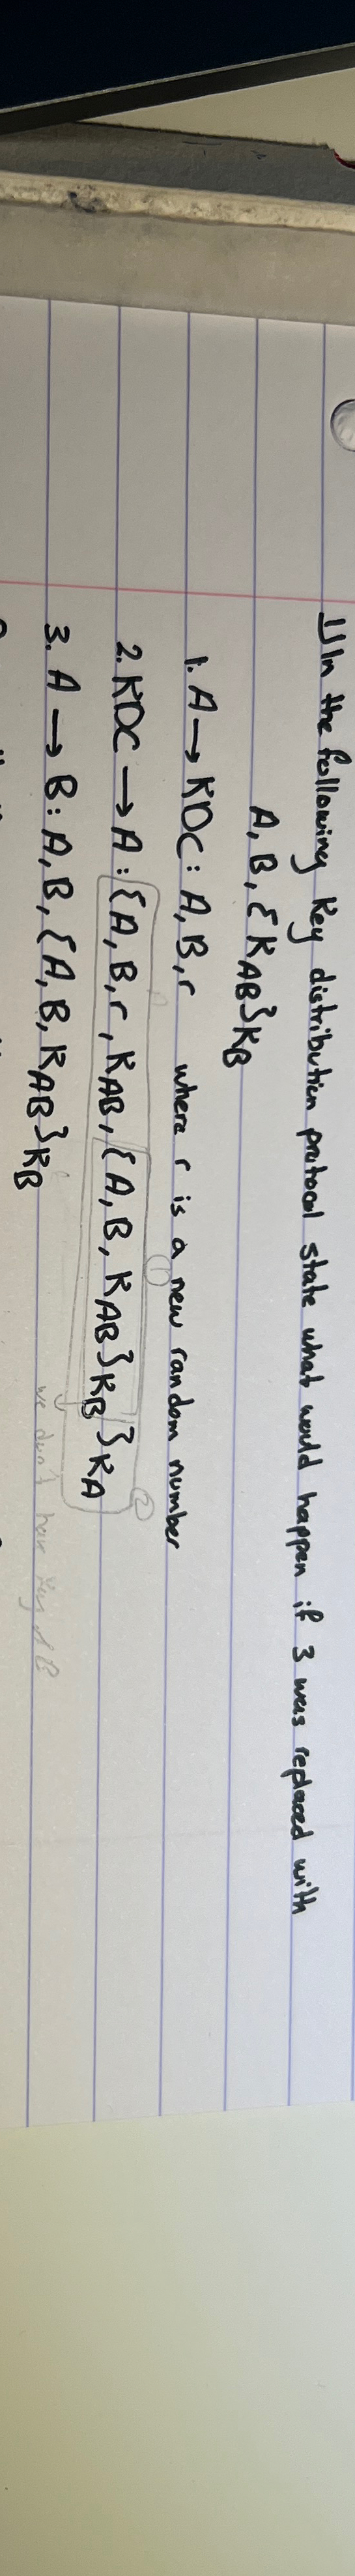 1) In the following key distribution protocol state what would happen if 3 was replaced with
A, B, {K_AB}K_B
1. A → KDC: A, B, r where r is a new random number
2. KDC → A: {A, B, r, K_AB, {A, B, K_AB}K_B}K_A
3. A → B: A, B, {A, B, K_AB}K_B
① ②
we don't have key of B